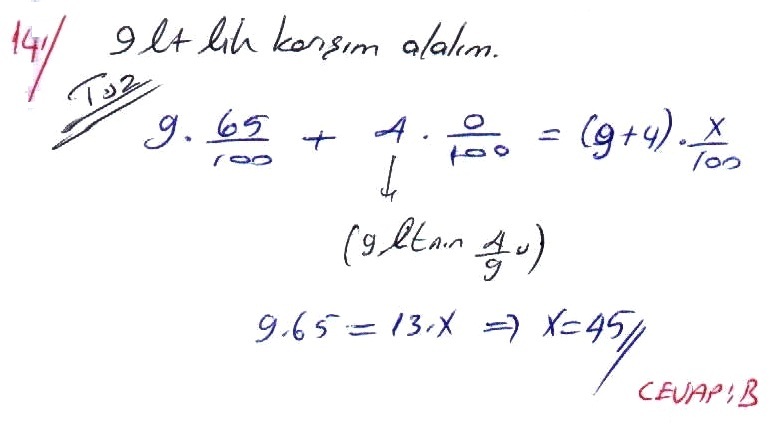 14) 9 lt lik karışım alalım.
Tuz
9 · 65/100 + 4 · 0/100 = (9+4) · x/100
↓
(9 lt nin 4/9 u)
9.65 = 13.x ⇒ x=45//
CEVAP: B